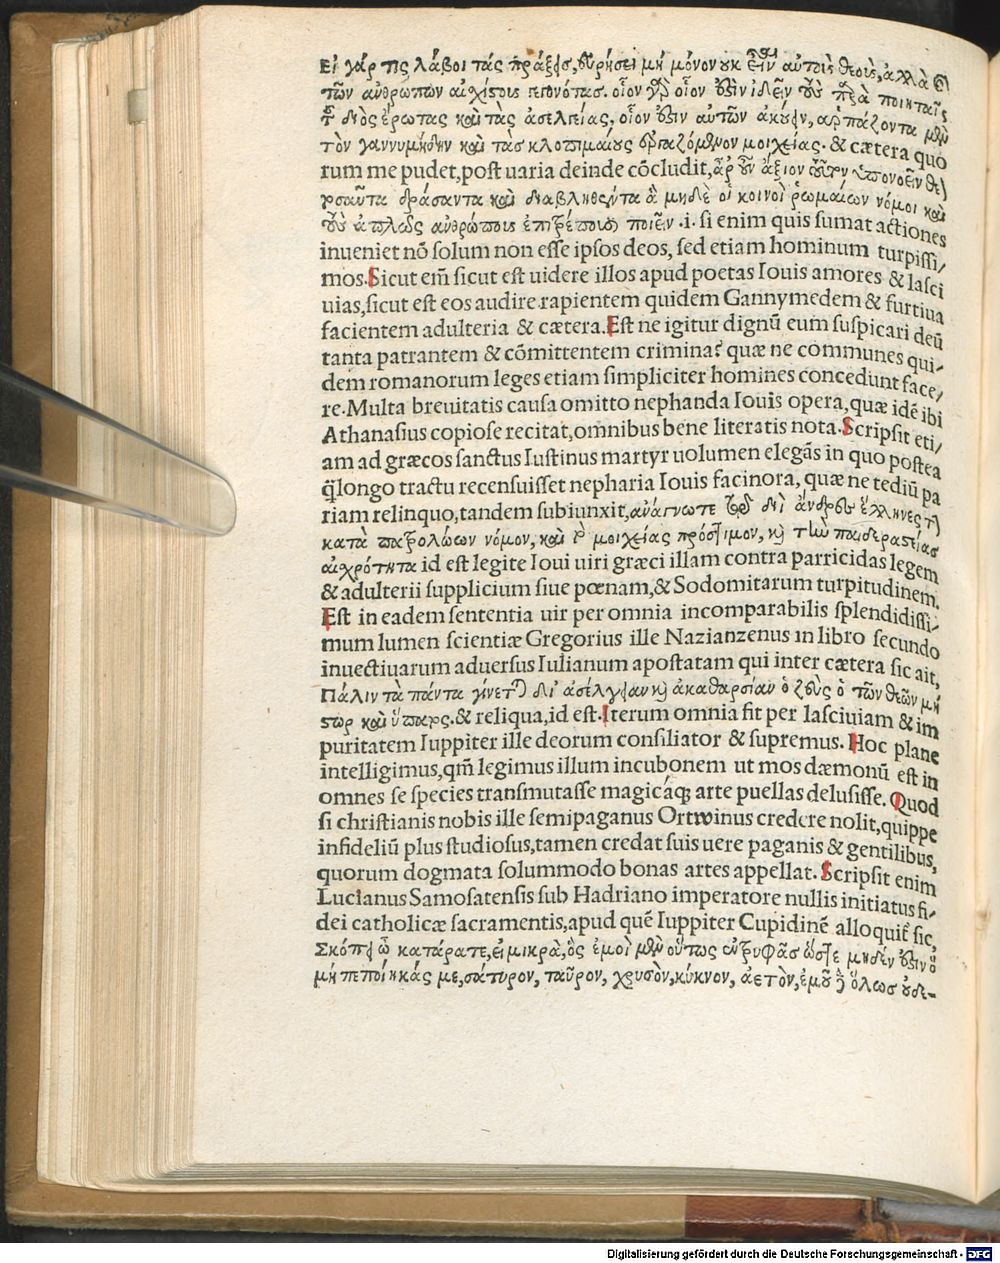 Εἰ γάρ τις λάβοι τὰς πράξεις, εὑρήσει μὴ μόνον οὐκ εἶναι αὐτοὺς θεοὺς, ἀλλὰ καὶ
τῶν ἀνθρώπων αἰχίστους γεγονότας. οἷον γὰρ οἷον ἐστιν ἰδεῖν τοὺς παρὰ ποιηταῖς
τοῦ διὸς ἔρωτας καὶ τὰς ἀσελγείας, οἷον ἐστιν αὐτῶν ἀκούειν, ἁρπάζοντα μὲν
τὸν γαννυμήδην καὶ τὰς κλοπιμαίους ἐργαζόμενον μοιχείας. & cætera quo
rum me pudet,post uaria deinde cõcludit,ἆρ οὖν ἄξιον ὑπονοεῖν θε
δράσαντα καὶ διαβληθέντα ἃ μηδὲ οἱ κοινοὶ ῥωμαίων νόμοι καὶ
τοὺς ἁπλῶς ἀνθρώπους ἐπιτρέπουσι ποιεῖν .i. si enim quis sumat actiones
inueniet nõ solum non esse ipsos deos, sed etiam hominum turpissi/
mos.Sicut em̃ sicut est uidere illos apud poetas Iouis amores & lasci
uias,sicut est eos audire rapientem quidem Gannymedem & furtiua
facientem adulteria & cætera.Est ne igitur dignũ eum suspicari deũ
tanta patrantem & cõmittentem crimina? quæ ne communes qui/
dem romanorum leges etiam simpliciter homines concedunt face/
re.Multa breuitatis causa omitto nephanda Iouis opera,quæ idẽ ibi
Athanasius copiose recitat,omnibus bene literatis nota.Scripsit eti/
am ad græcos sanctus Iustinus martyr uolumen elegãs in quo postea
q̃longo tractu recensuisset nepharia Iouis facinora, quæ ne tediũ pa
riam relinquo,tandem subiunxit,ἀνάγνωτε τῷ διῒ ἄνδρες ἕλληνες τὸν
κατὰ πατρολώων νόμον, καὶ τὸ μοιχείας πρόστιμον, κὴ τὴν παιδεραστείας
αἰχρότητα id est legite Ioui uiri græci illam contra parricidas legem
& adulterii supplicium siue pœnam,& Sodomitarum turpitudinem.
Est in eadem sententia uir per omnia incomparabilis splendidissi/
mum lumen scientiæ Gregorius ille Nazianzenus in libro secundo
inuectiuarum aduersus Iulianum apostatam qui inter cætera sic ait,
Πάλιν τὰ πάντα γίνεται δι' ἀσέλγειαν κὴ ἀκαθαρσίαν ὁ ζεὺς ὁ τῶν θεῶν μή
στωρ καὶ ὕπατος. & reliqua,id est.Iterum omnia fit per lasciuiam & im
puritatem Iuppiter ille deorum consiliator & supremus. Hoc plane
intelligimus,qm̃ legimus illum incubonem ut mos dæmonũ est in
omnes se species transmutasse magicáq; arte puellas delusisse. Quod
si christianis nobis ille semipaganus Ortwinus credere nolit,quippe
infideliũ plus studiosus,tamen credat suis uere paganis & gentilibus,
quorum dogmata solummodo bonas artes appellat.Scripsit enim
Lucianus Samosatensis sub Hadriano imperatore nullis initiatus fi/
dei catholicæ sacramentis,apud quẽ Iuppiter Cupidinẽ alloquit̃ sic,
Σκόπει ὦ κατάρατε,εἰ μικρὰ,ὃς ἐμοὶ μὲν οὕτως ἐντρυφᾶς ὥστε μηδέν ἐστιν ὃ
μὴ πεποίηκάς με,σάτυρον, ταῦρον, χρυσὸν,κύκνον, ἀετὸν,ἐμοῦ δὲ ὅλως οὐδε-
Digitalisierung gefördert durch die Deutsche Forschungsgemeinschaft - DFG